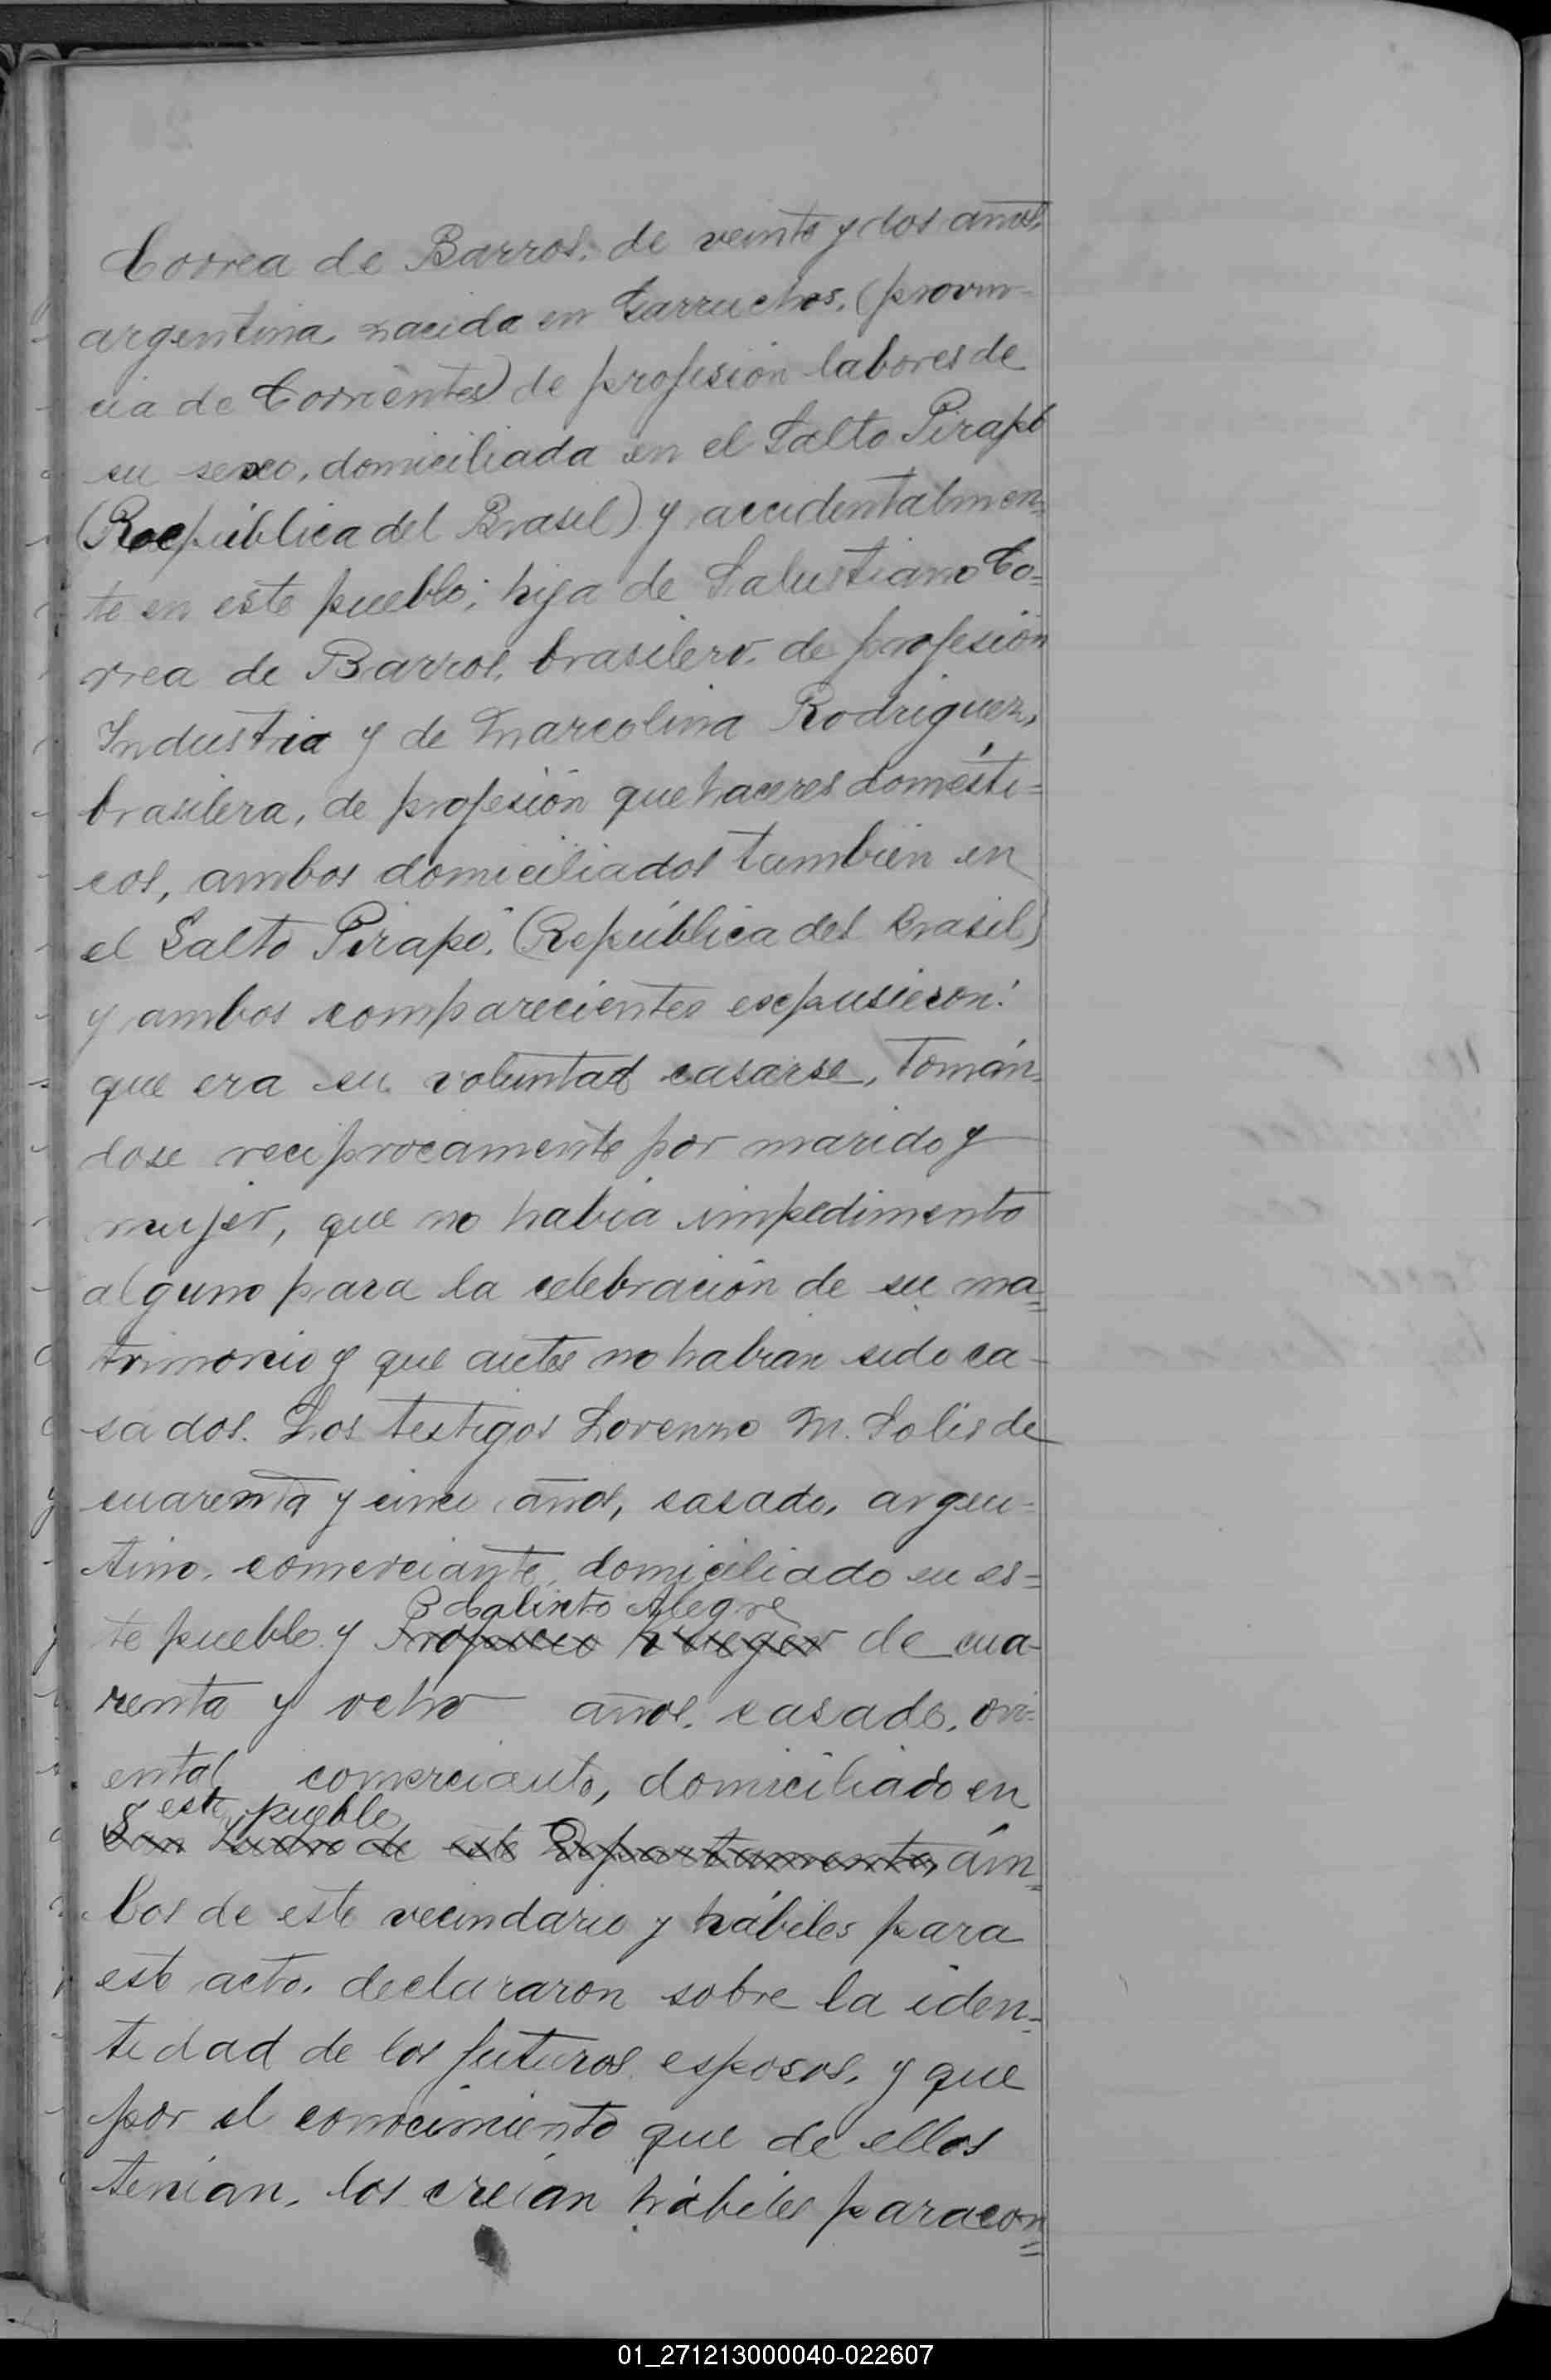 Correa de Barros, de veinte y dos años,
argentina, nacida en Garruchos, (provin-
cia de Corrientes) de profesión labores de
su sexo, domiciliada en el Salto Pirapó
(República del Brasil) y accidentalmen=
te en este pueblo; hija de Salustiano Co=
rrea de Barros, brasilero, de profesión
Industria y de Marcolina Rodriguez,
brasilera, de profesión quehaceres domésti=
cos, ambos domiciliados también en
el Salto Pirapó, (República del Brasil)
y ambos comparecientes expusieron:
que era su voluntad casarse, tomán=
dose reciprocamente por marido y
mujer, que no habia impedimento
alguno para la celebración de su ma=
trimonio y que antes no habian sido ca-
sados. Los testigos Lorenzo M. Solis de
cuarenta y cinco años, casado, argen=
tino, comerciante, domiciliado en es=
Calixto Alegre
te pueblo y de cua-
renta y ocho años, casado, ori=
ental, comerciante, domiciliado en
este pueblo,
San Isidro de este Departamento, ám=
bos de este vecindario y hábiles para
este acto, declararon sobre la iden=
tidad de los futuros esposos, y que
por el conocimiento que de ellos
tenian, los creían hábiles para con=
01_271213000040-022607